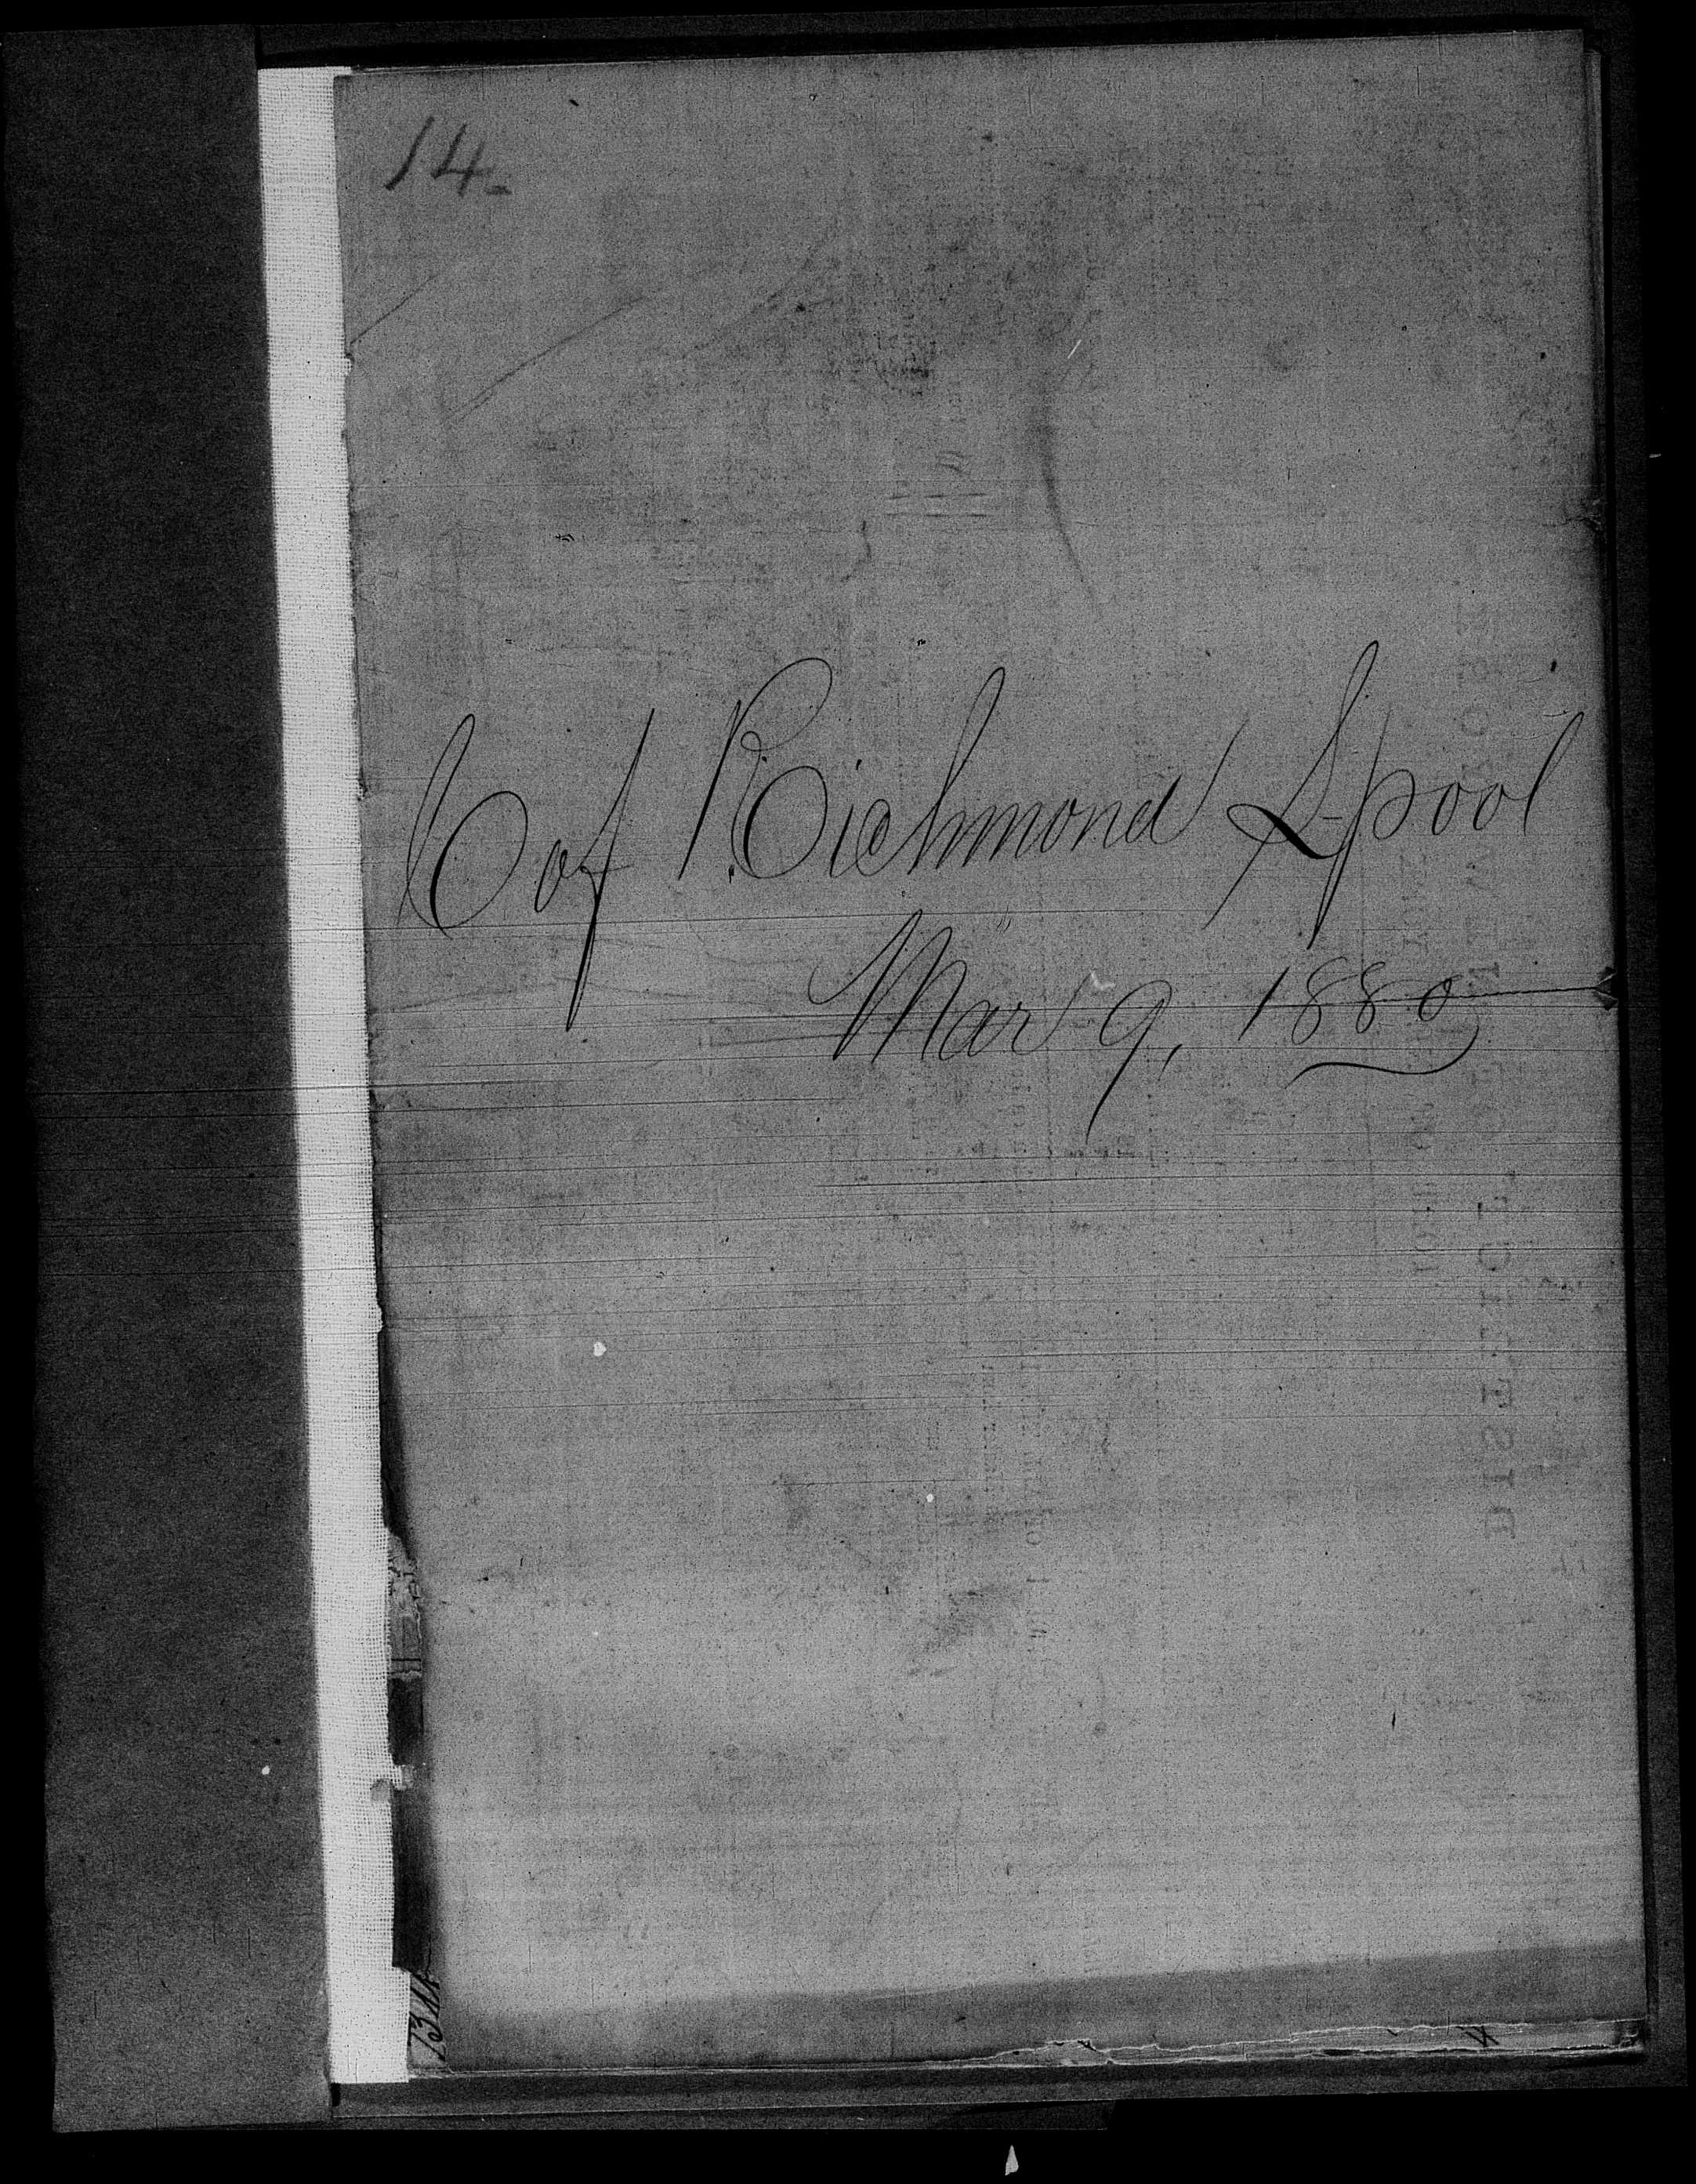 14.
C of Richmond L-pool
Mar 9, 1880